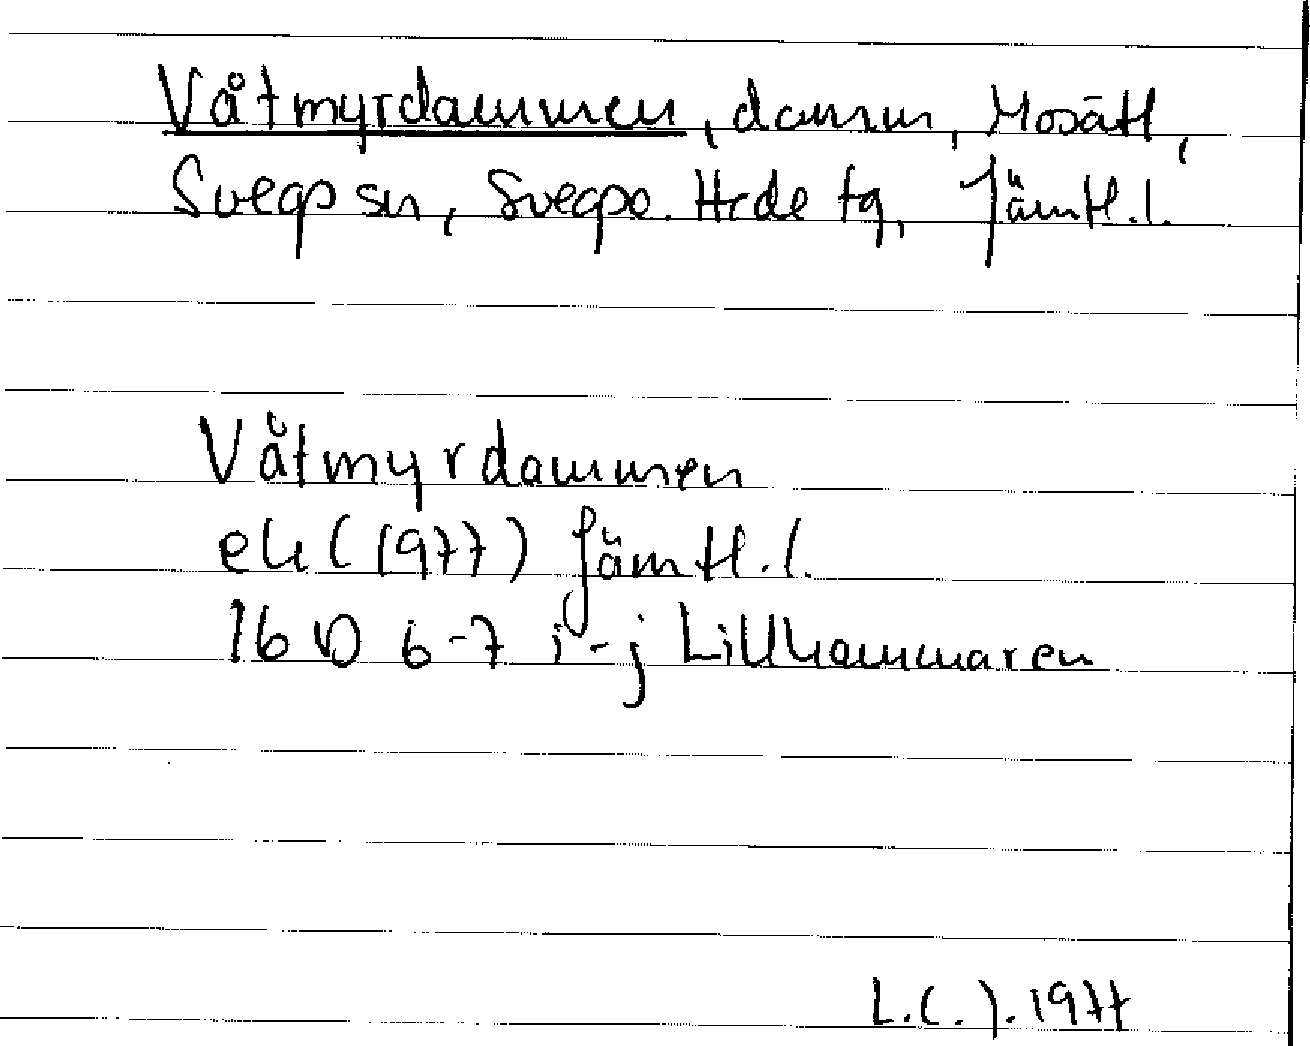 Våtmyrdammen, damm, Mosätt,
Svegs sn, Svegs o. Hede tg, Jämtl. l.
Våtmyrdammen
ek (1977) Jämtl. l.
16 D 6-7 i-j Lillhammaren
L.C.J. 1977